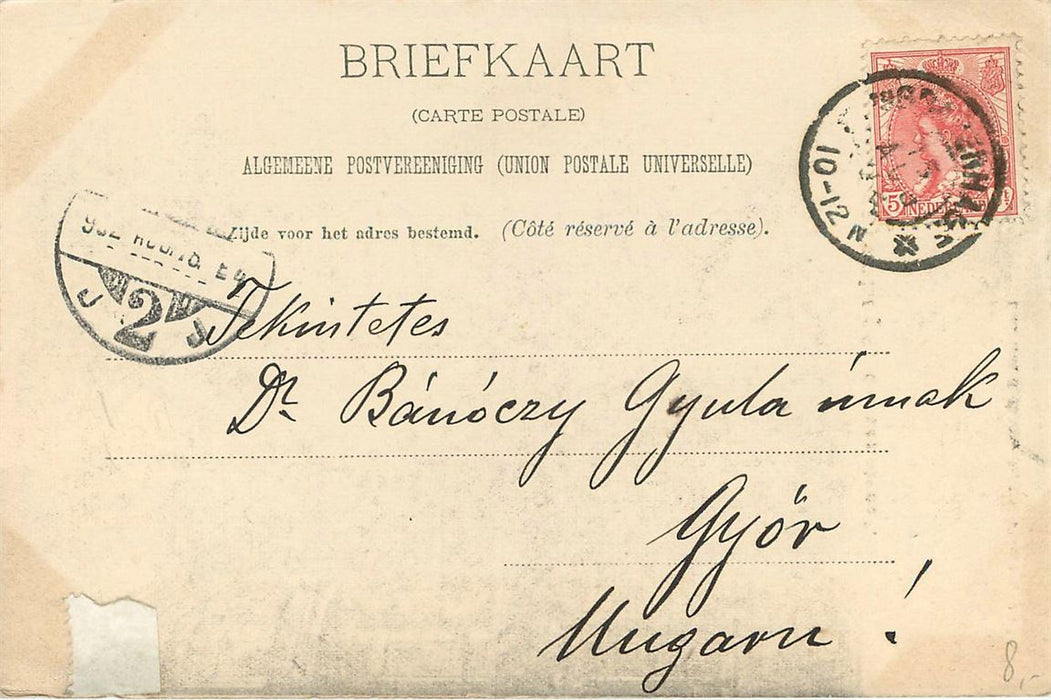 BRIEFKAART
(CARTE POSTALE)
ALGEMEENE POSTVEREENIGING (UNION POSTALE UNIVERSELLE)
Zijde voor het adres bestemd. (Côté réservé à l'adresse).
5 NEDERLAND
N 12-01
902 AUG
2
J J
Tekintetes
Dr. Bánóczy Gyula úrnak
Győr
Ungarn !
8,-